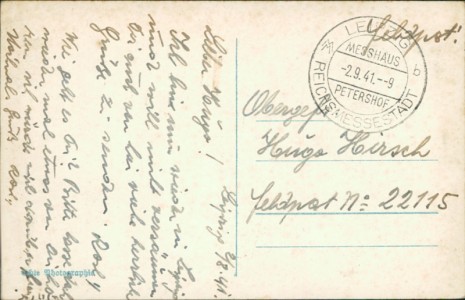 Leipzig 2/9.41.
Lieber Hugo!
Ich bin nun wieder in Leipzig
und will nicht versäumen
Dir auch von hier recht herzliche
Grüße zu senden.
Wie geht es Dir? Bitte lasse doch
mal etwas von Dir hören
ich würde mich
Feldpost!
LEIPZIG b
MESSHAUS
-2.9.41.--9
PETERSHOF
REICHSMESSESTADT
Obergefr.
Hugo Hirsch
Feldpost No 22115
Echte Photographie